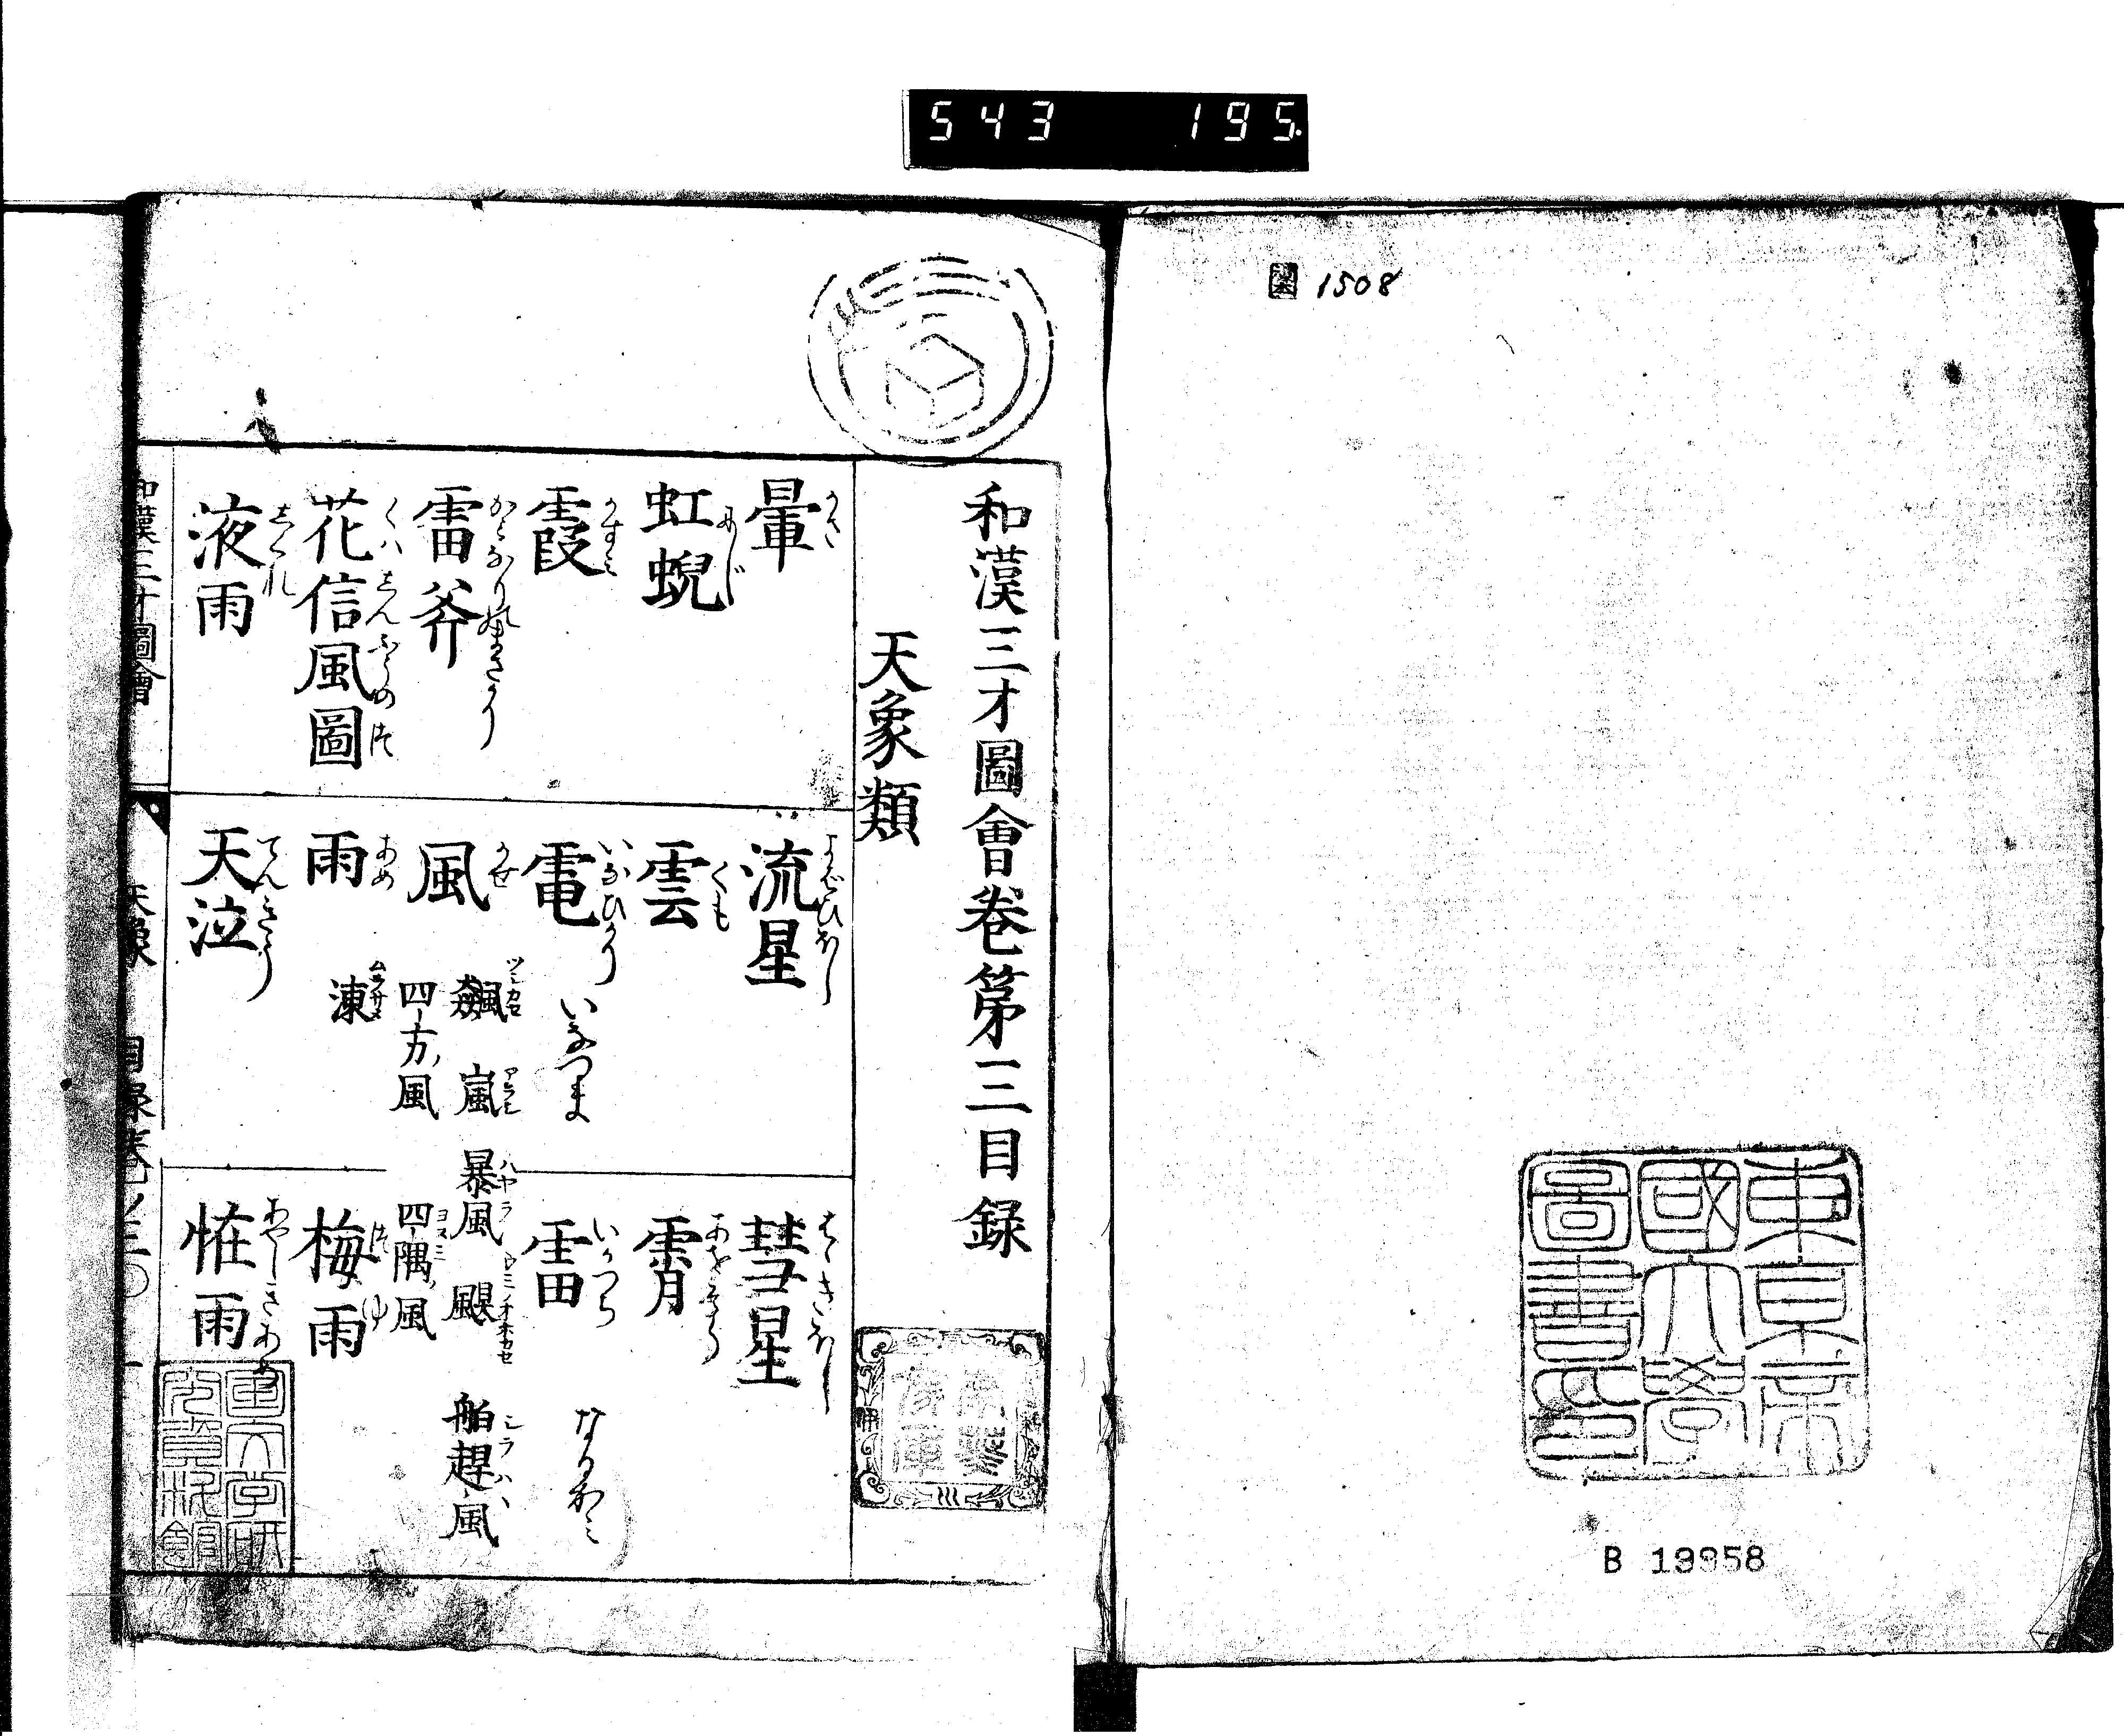 543 195.
1508
東京帝
國大學
圖書印
B 19958
和漢三才圖會卷第三目録
天象類
暈 かさ
流星 よばひぼし
彗星 はゝきぼし
虹蜺 にじ
雲 くも
霄 あをぞら
霞 かすみ
電 いなびかり いなづま
雷 いかづち なるかみ
雷斧 かみなりのまさかり
風 かぜ
飈 ツシカセ 嵐 アラシ 暴風 ハヤテ 颶 ウミノオホカセ 舶趕風 シラハヘ
四方ノ風 四隅ノ風 ヨスミノ
花信風圖 くはしんふうのづ
雨 あめ
涷 ムラサメ
梅雨 つゆ
液雨 しぐれ
天泣 てんきう
恠雨 あやしきあめ
和漢三才圖會 天象 目録卷ノ三 一
国文学研
究資料館